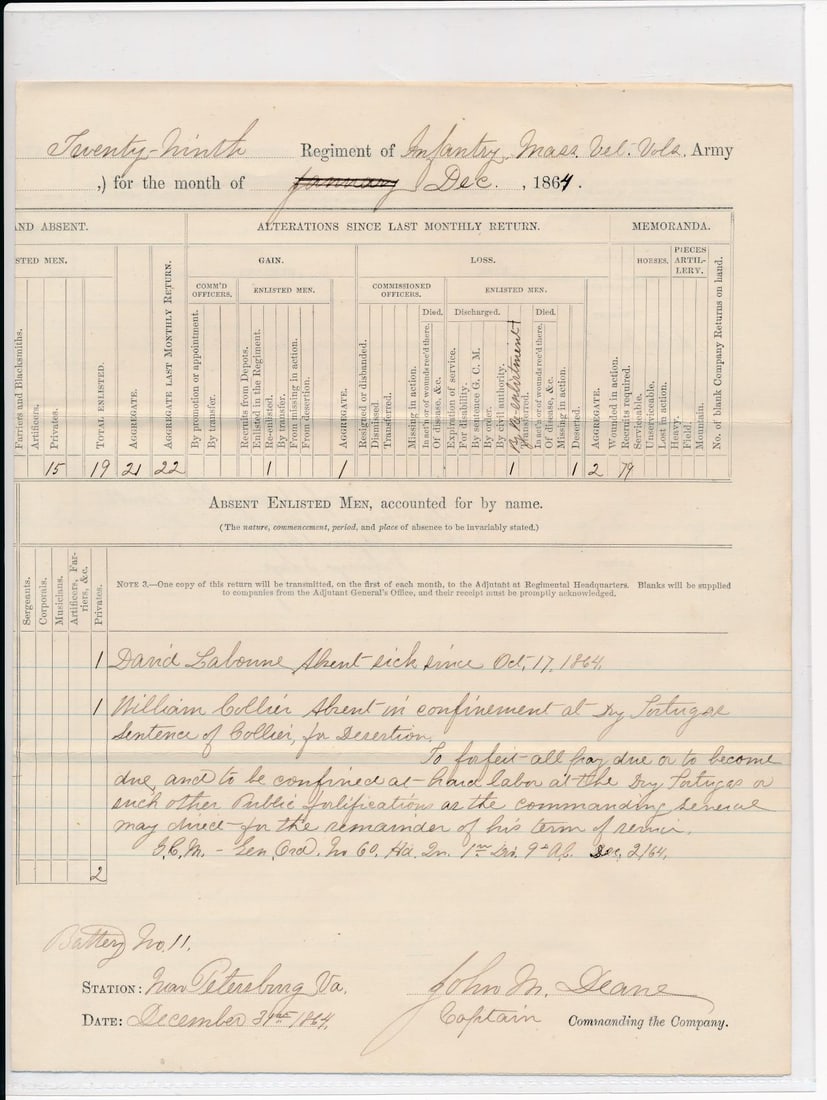 Twenty-Ninth Regiment of Infantry, Mass. Vet. Vols. Army
,) for the month of January Dec. , 1864.
ND ABSENT.
ALTERATIONS SINCE LAST MONTHLY RETURN.
MEMORANDA.
STED MEN.
GAIN.
LOSS.
HORSES.
PIECES ARTILLERY.
COMM'D OFFICERS.
ENLISTED MEN.
COMMISSIONED OFFICERS.
ENLISTED MEN.
Died.
Discharged.
Died.
Farriers and Blacksmiths.
Artificers.
Privates.
TOTAL ENLISTED.
AGGREGATE.
AGGREGATE LAST MONTHLY RETURN.
By promotion or appointment.
By transfer.
Recruits from Depots.
Enlisted in the Regiment.
Re-enlisted.
By transfer.
From missing in action.
From desertion.
AGGREGATE.
Resigned or disbanded.
Dismissed
Transferred.
Missing in action.
In act'n or of wounds rec'd there.
Of disease, &c.
Expiration of service.
For disability.
By sentence G. C. M.
By order.
By civil authority.
By Re-enlistment
Transferred.
In act'n or of wounds rec'd there.
Of disease, &c.
Missing in action.
Deserted.
AGGREGATE.
Wounded in action.
Recruits required.
Serviceable.
Unserviceable.
Lost in action.
Heavy.
Field.
Mountain.
No. of blank Company Returns on hand.
15 19 21 22 1 1 1 1 2 79
ABSENT ENLISTED MEN, accounted for by name.
(The nature, commencement, period, and place of absence to be invariably stated.)
Sergeants.
Corporals.
Musicians.
Artificers, Farriers, &c.
Privates.
NOTE 3.—One copy of this return will be transmitted, on the first of each month, to the Adjutant at Regimental Headquarters. Blanks will be supplied
to companies from the Adjutant General's Office, and their receipt must be promptly acknowledged.
1 David Labonne Absent sick since Oct, 17, 1864,
1 William Collier Absent in confinement at Dry Tortugas
Sentence of Collier, for Desertion.
To forfeit all pay due or to become
due, and to be confined at hard labor at the Dry Tortugas or
such other Public fortifications as the commanding General
may direct for the remainder of his term of service.
G.C.M. - Gen. Ord. No 60, Hd. Qrs. 1st Div. 9th A.C. Dec, 2/64,
2
Battery No. 11.
STATION: Near Petersburg Va.
John M. Deane
DATE: December 31st 1864,
Captain Commanding the Company.